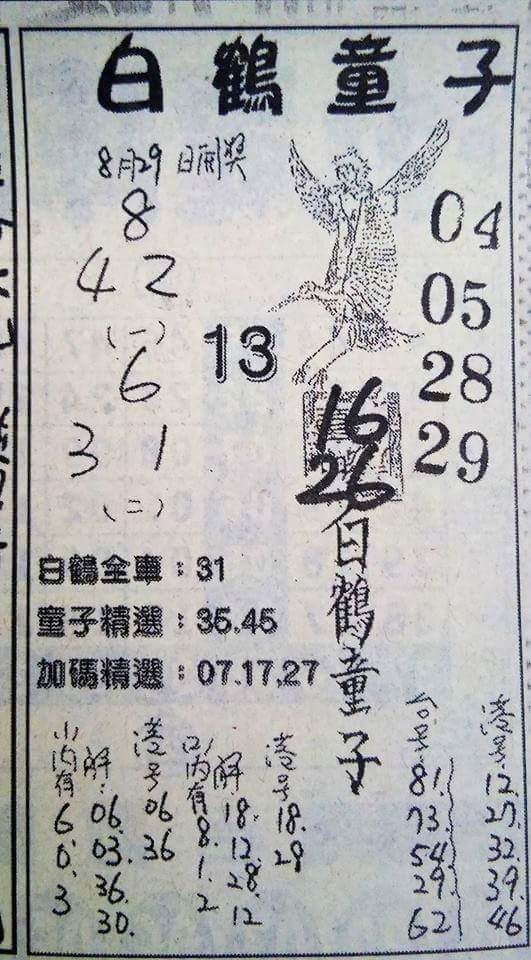 白鶴童子
8月29日開獎
8
4 2
(一)
6
3 1
(二)
13
04
05
28
29
16
26
白鶴童子
白鶴全車：31
童子精選：35.45
加碼精選：07.17.27
小內有
6
0
3
解：
06.
03.
36.
30.
港号
06
36
口內有
8.
1.
2
解
18.
12.
28.
12
港号
18.
29
台号
81.
73.
54.
29.
62
港号
12.
27.
32
39
46